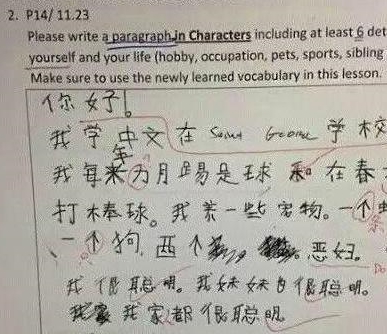 2. P14/ 11.23
Please write a paragraph in Characters including at least 6 det
yourself and your life (hobby, occupation, pets, sports, sibling
Make sure to use the newly learned vocabulary in this lesson.
你好!
我学中文在 George 学校
我每年 月踢足球和在春
打棒球。我养一些宠物。一个
一个狗,西个 恶妇。
我很聪明。我妹妹也很聪明。
我家都很聪明